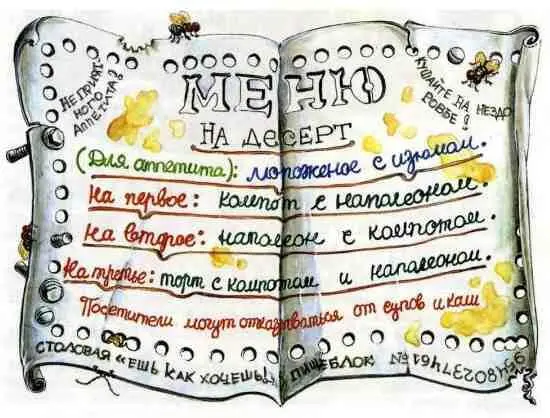 НЕПРИЯТ-
НОГО
АППЕТИТА?
КУШАЙТЕ НА НЕЗДО
РОВЬЕ!
МЕНЮ
НА ДЕСЕРТ
(Для аппетита): мороженое с изюмом.
На первое: компот с наполеоном.
На второе: наполеон с компотом.
На третье: торт с компотом и наполеоном.
Посетители могут отказываться от супов и каш
СТОЛОВАЯ «ЕШЬ КАК ХОЧЕШЬ» ПИЩЕБЛОК №